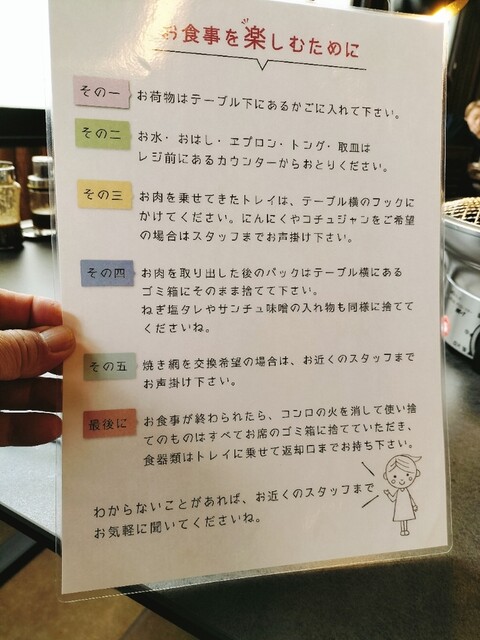 お食事を楽しむために
その一
お荷物はテーブル下にあるかごに入れて下さい。
その二
お水・おはし・エプロン・トング・取皿は
レジ前にあるカウンターからおとりください。
その三
お肉を乗せてきたトレイは、テーブル横のフックに
かけてください。にんにくやコチュジャンをご希望
の場合はスタッフまでお声掛け下さい。
その四
お肉を取り出した後のパックはテーブル横にある
ゴミ箱にそのまま捨てて下さい。
ねぎ塩タレやサンチュ味噌の入れ物も同様に捨てて
くださいね。
その五
焼き網を交換希望の場合は、お近くのスタッフまで
お声掛け下さい。
最後に
お食事が終わられたら、コンロの火を消して使い捨
てのものはすべてお席のゴミ箱に捨てていただき、
食器類はトレイに乗せて返却口までお持ち下さい。
わからないことがあれば、お近くのスタッフまで
お気軽に聞いてくださいね。